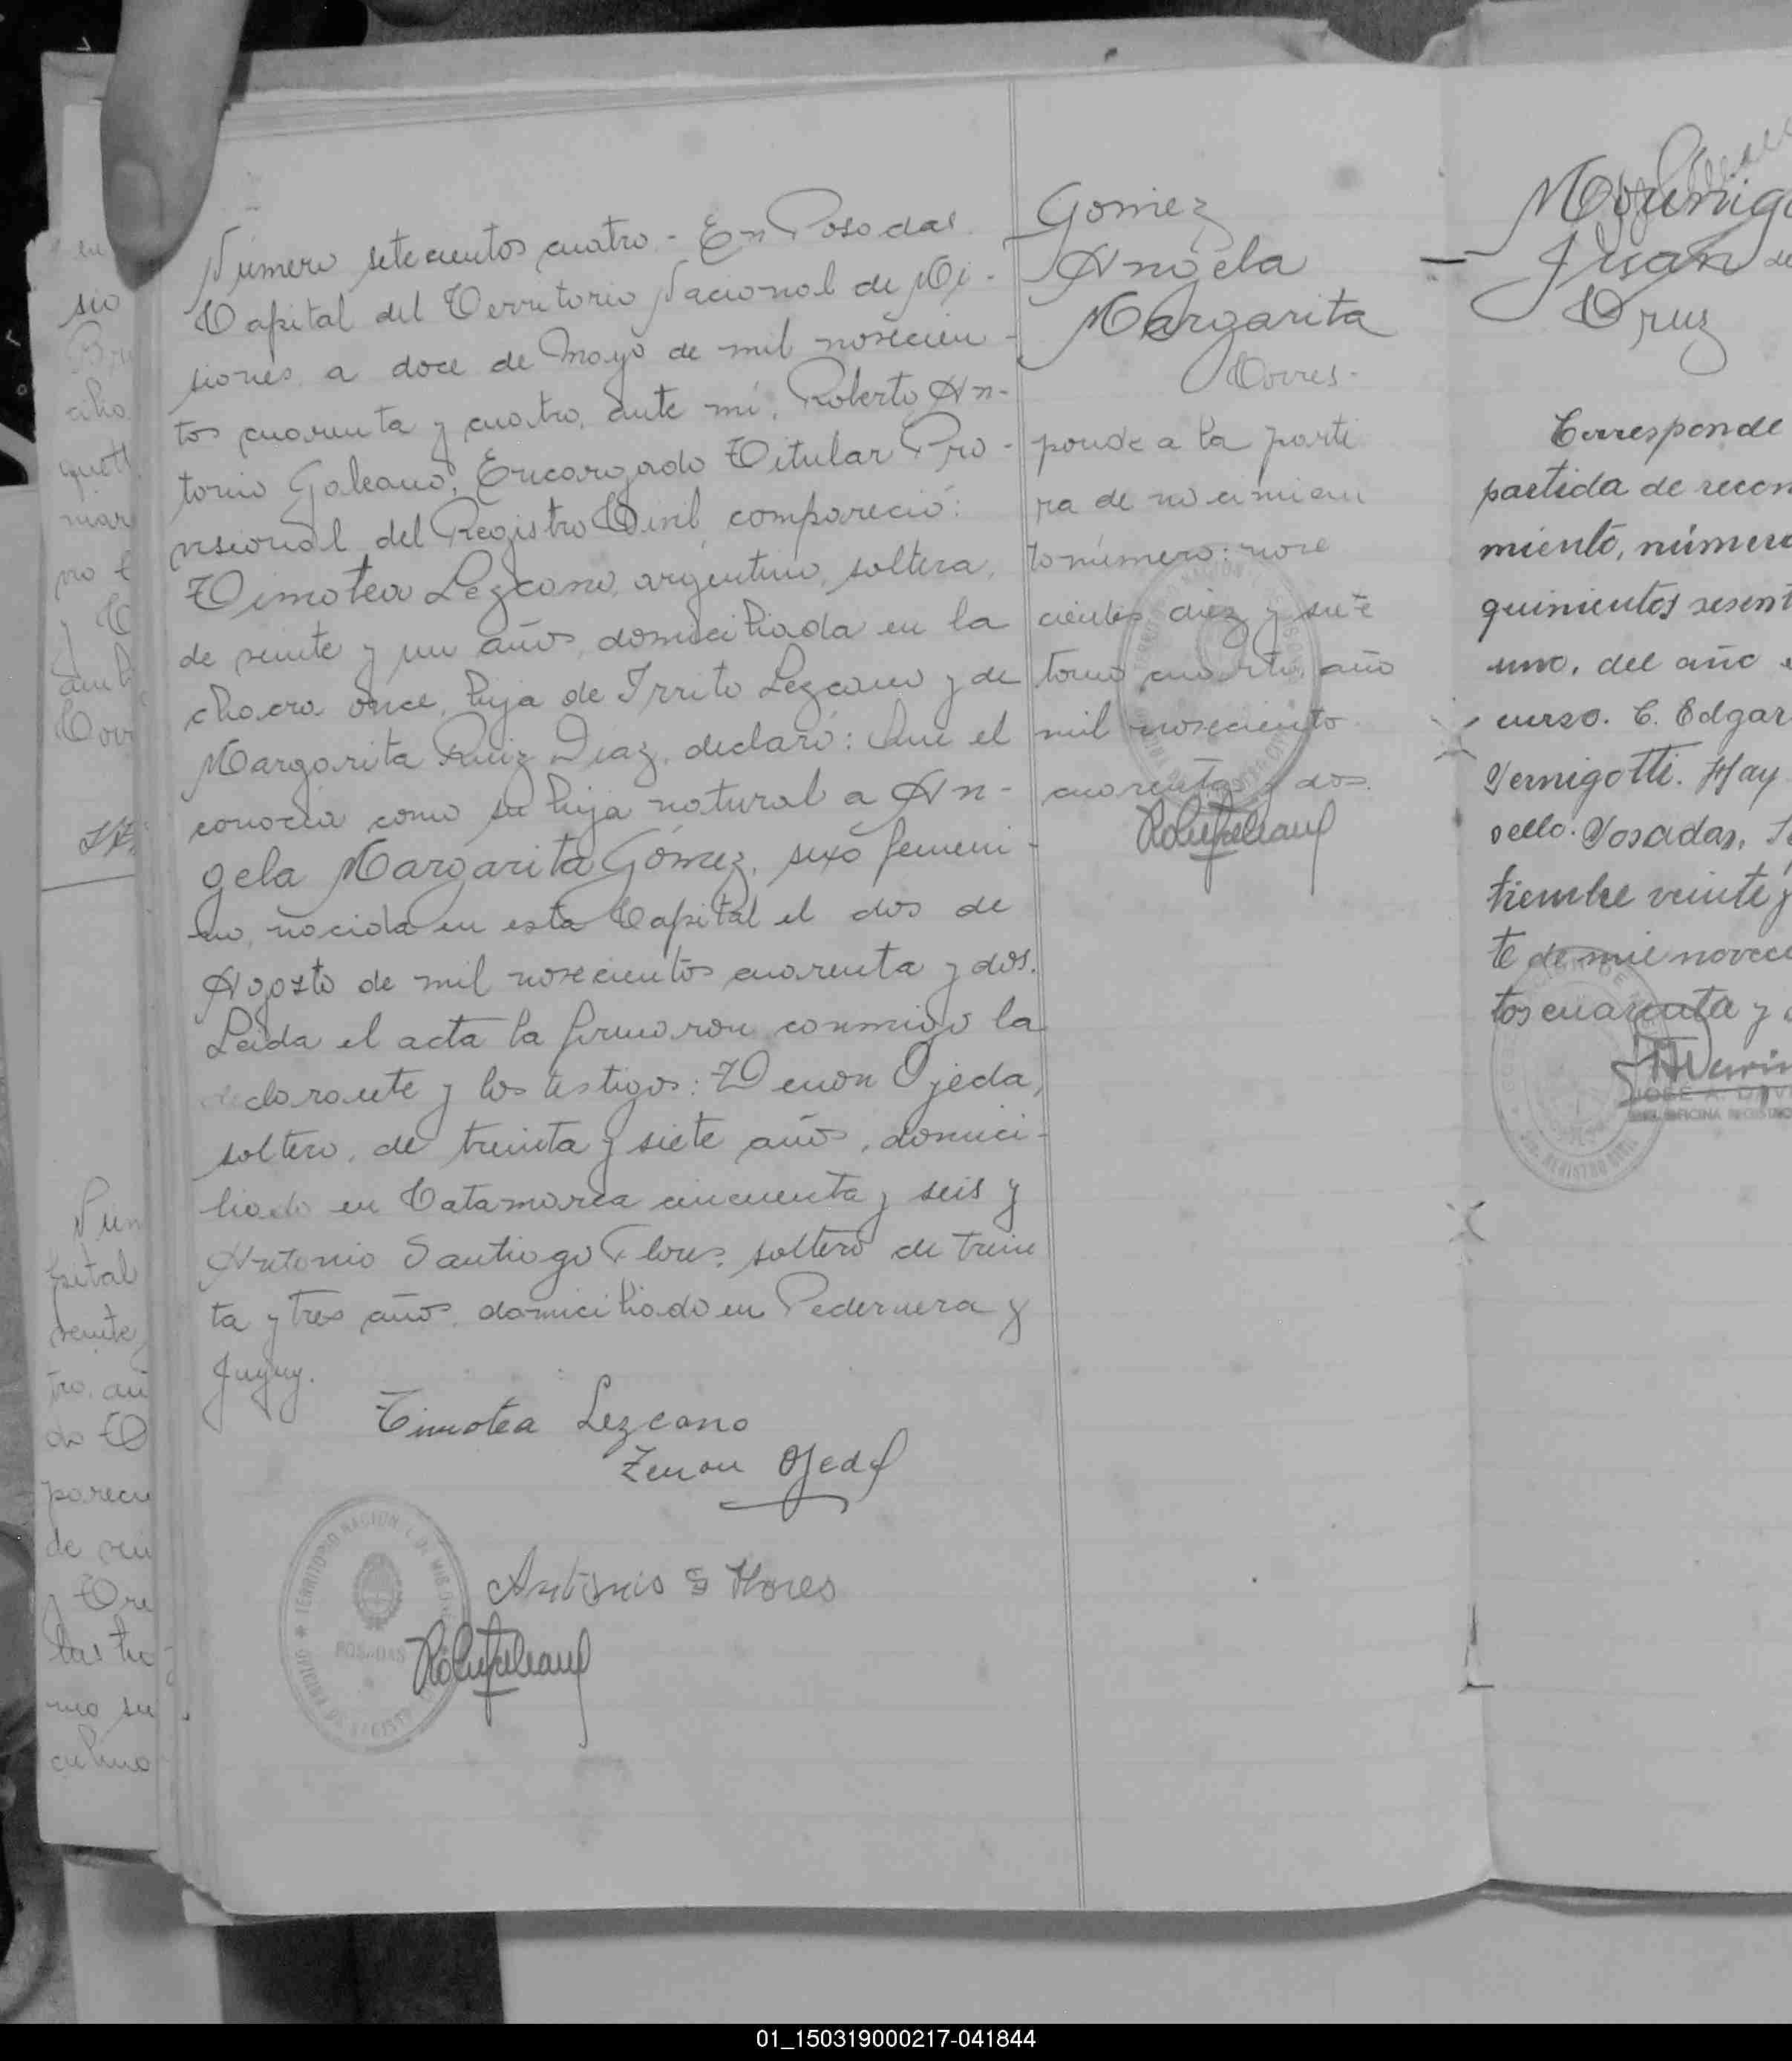 Número setecientos cuatro - En Posadas
Capital del Territorio Nacional de Mi-
siones, a doce de Mayo de mil novecien-
tos cuarenta y cuatro, ante mí, Roberto An-
tonio Galeano, Encargado Titular Pro-
visional del Registro Civil, compareció:
Timotea Lezcano, argentina, soltera,
de veinte y un años, domiciliada en la
chacra once, hija de Irrito Lezcano y de
Margarita Ruiz Diaz, declaró: Que el
conocia como su hija natural a An-
gela Margarita Gómez, sexo femeni-
no, nacida en esta Capital el dos de
Agosto de mil novecientos cuarenta y dos.
Leida el acta la firmaron conmigo la
declarante y los testigos: Zenon Ojeda,
soltero, de treinta y siete años, domici-
liado en Catamarca cincuenta y seis y
Antonio Santiago Flores, soltero de trein
ta y tres años, domiciliado en Pedernera y
Jujuy.
Timotea Lezcano
Zenon Ojeda
Antonio S Flores
TERRITORIO NACIONAL DE MISIONES
POSADAS
Gomez
Angela
Margarita
Corres-
ponde a la parti
ra de nacimien
to número: nove
cientos diez y siete
tomo cuarto, año
mil noveciento
cuarenta y dos.
Mourigo
Juan de
Cruz
Corresponde
partida de recon
miento, número
quinientos sesent
uno, del año e
curso. C. Edgar
Vernigotti. Hay
sello. Posadas, Se
tiembre veinte y
te de mil novecie
tos cuarenta y
JOSE A. DAV
OFICINA REGISTRO
REGISTRO CIVIL
sio
mar
Num
pital
veinte
tro, an
do
parecu
de vei
las
mo su
culino
01_150319000217-041844